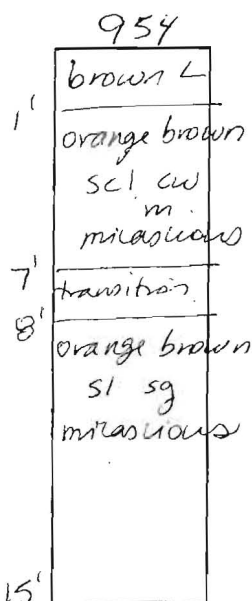 954
brown L
1'
orange brown
scl cw
m.
micasious
7'
transition
8'
orange brown
sl sg
micasious
15'